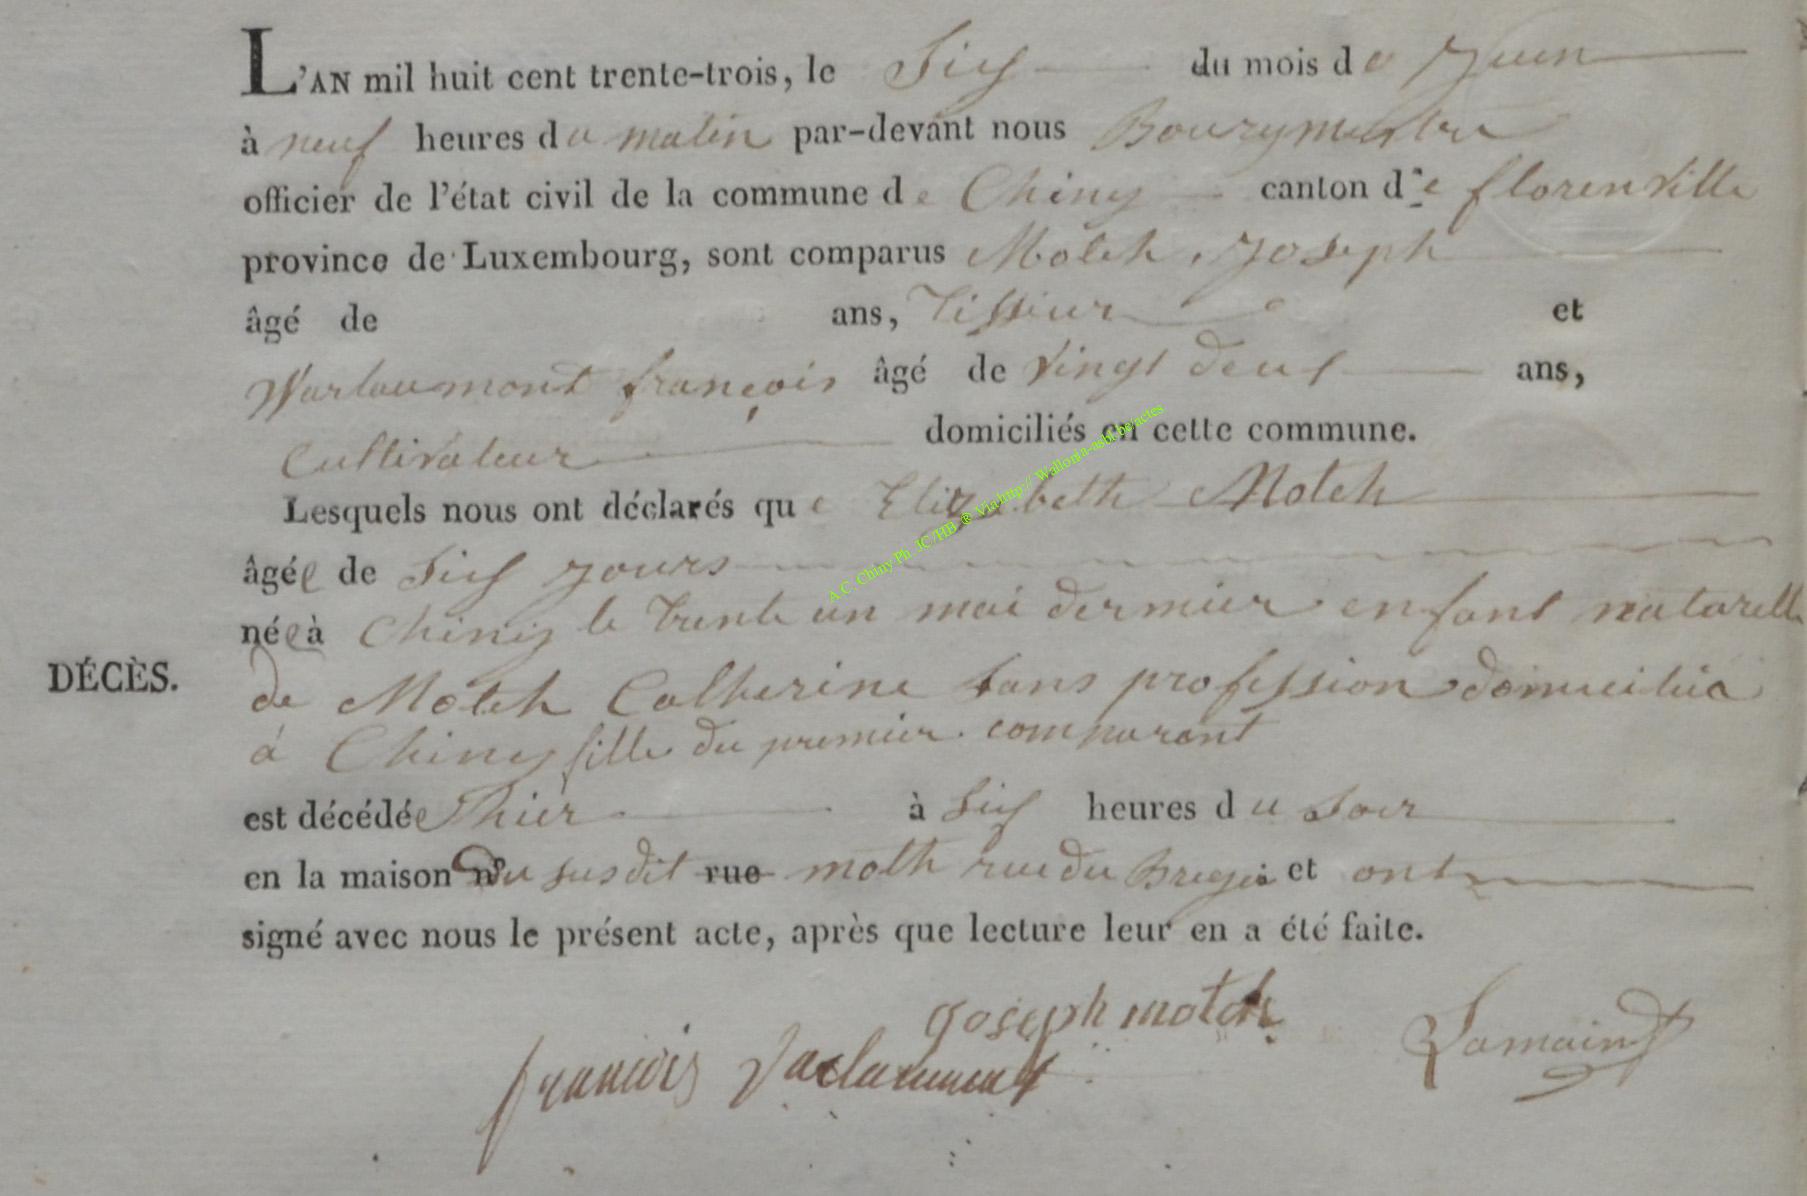 L'AN mil huit cent trente-trois, le Six du mois de Juin
à neuf heures du matin par-devant nous Bourgmestre
officier de l'état civil de la commune de Chiny canton de florenville
province de Luxembourg, sont comparus Motch Joseph
âgé de ans, Tisseur et
Warlaumont françois âgé de vingt deux ans,
Cultivateur domiciliés en cette commune.
Lesquels nous ont déclarés que Elizabeth Motch
âgée de Six jours
née à Chiny le trente un mai dernier enfant naturelle
DÉCÈS.
de Motch Catherine Sans profession domiciliée
à Chiny fille du premier comparant
est décédée hier à Six heures du Soir
en la maison du susdit rue moth rue du et ont
signé avec nous le présent acte, après que lecture leur en a été faite.
joseph motch
francois
A.C. Chiny Ph. JC/HB ® Via http:// Wallonia-asbl.be/actes